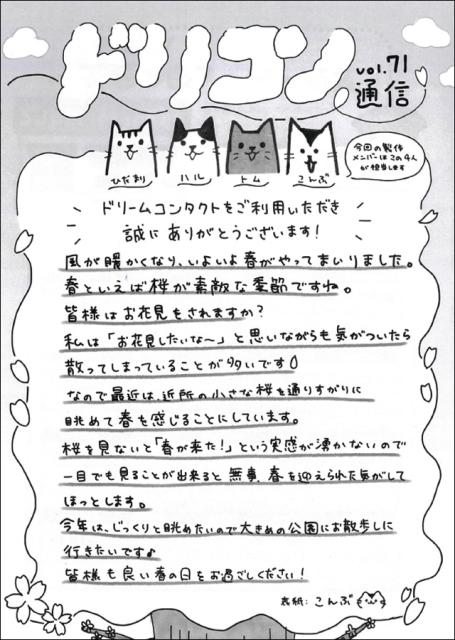 ドリコン
vol.71
通信
今回の製作
メンバーはこの4人
が担当します
ひだまり
ハル
トム
こんぶ
ドリームコンタクトをご利用いただき
誠にありがとうございます!
風が暖かくなり、いよいよ春がやってまいりました。
春といえば桜が素敵な季節ですね。
皆様はお花見をされますか?
私は「お花見したいな～」と思いながらも気がついたら
散ってしまっていることが多いです
なので最近は、近所の小さな桜を通りすがりに
眺めて春を感じることにしています。
桜を見ないと「春が来た!」という実感が湧かないので
一目でも見ることが出来ると無事、春を迎えられた気がして
ほっとします。
今年は、じっくりと眺めたいので大きめの公園にお散歩しに
行きたいです♪
皆様も良い春の日をお過ごしください!
表紙:こんぶ